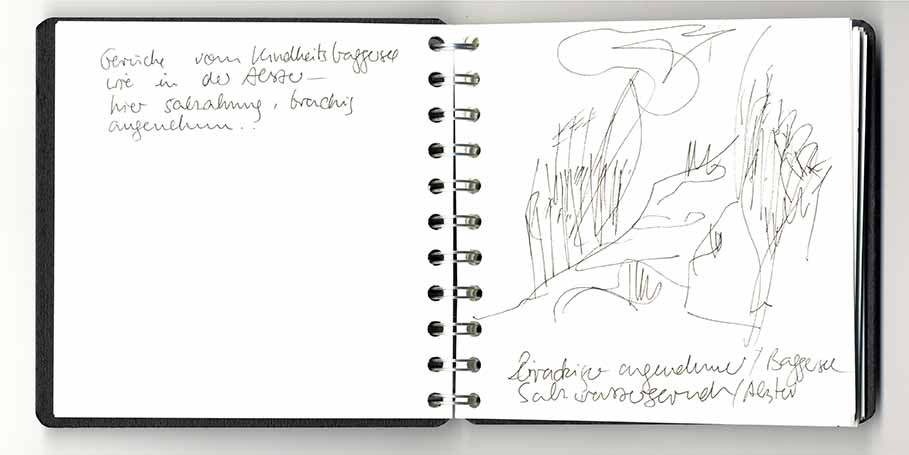 Gerüche vom Kindheitsbaggersee
wie in der Alster —
hier salzahnung, brachig
angenehm..
Brackiger angenehmer / Baggersee
Salzwassergeruch / Alster